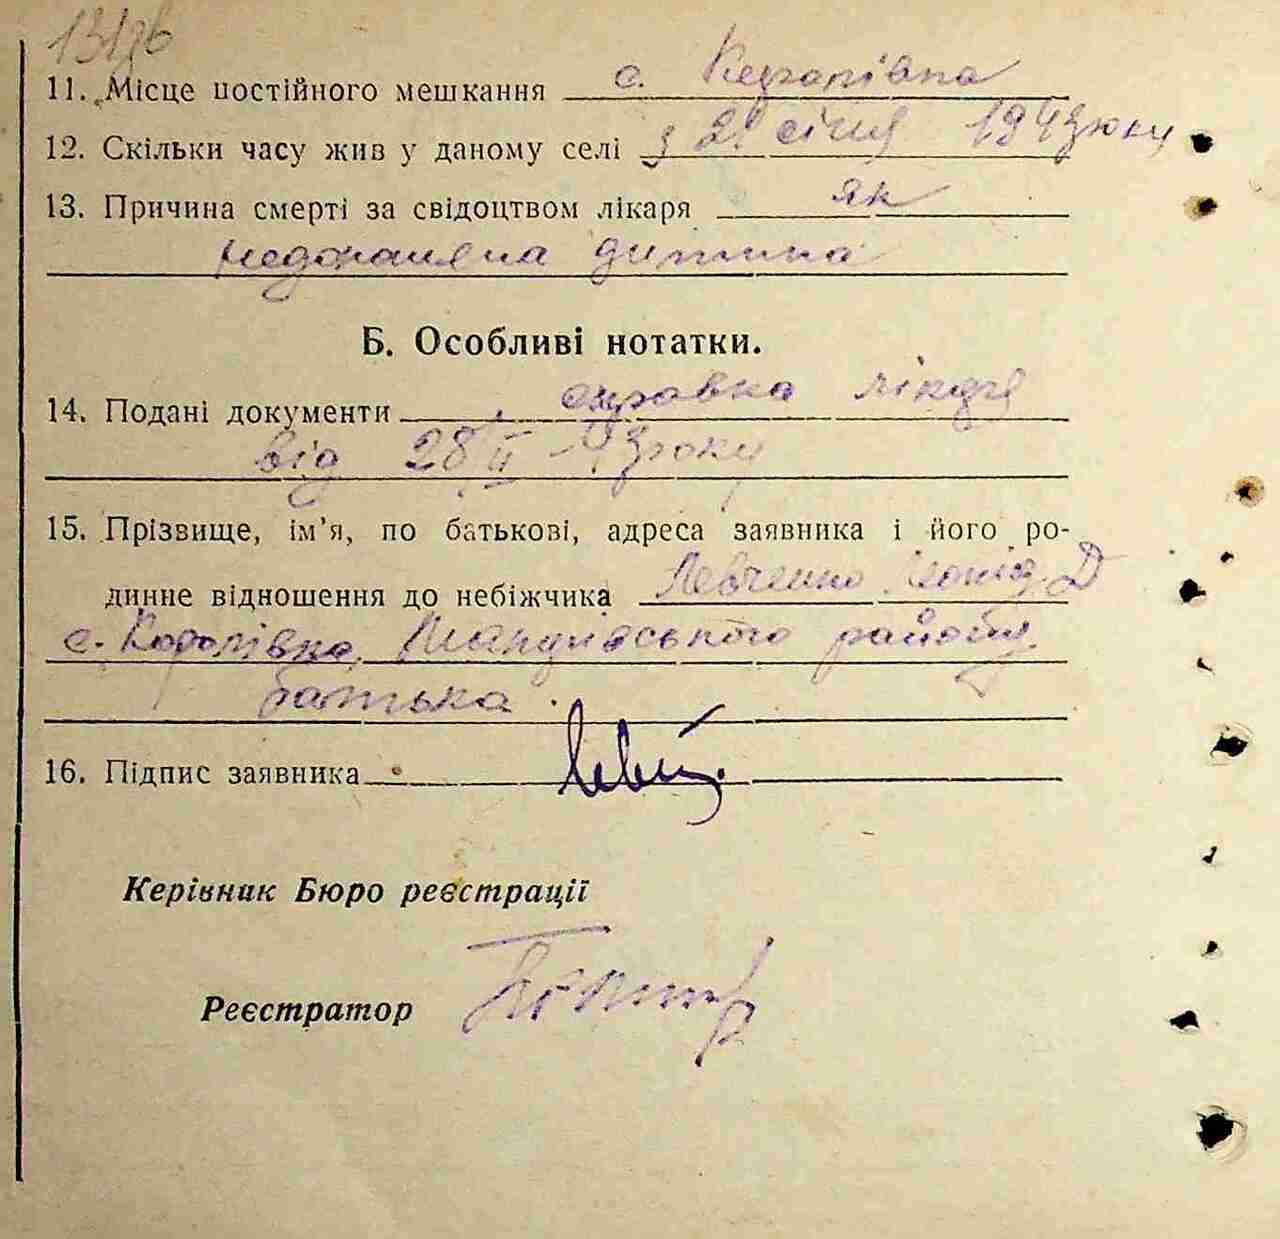 11. Місце постійного мешкання с.
12. Скільки часу жив у даному селі з 2 січня 1943 року
13. Причина смерті за свідоцтвом лікаря як
недоношена дитина
Б. Особливі нотатки.
14. Подані документи справка лікаря
від 28/II - 43 року
15. Прізвище, ім'я, по батькові, адреса заявника і його ро-
динне відношення до небіжчика Левченко Леонід Д
с. району
батько
16. Підпис заявника
Керівник Бюро реєстрації
Реєстратор